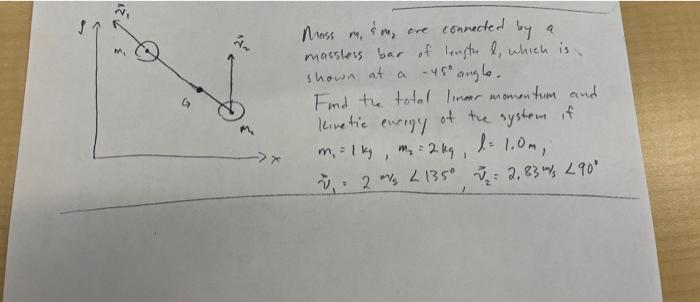 y
v⃗₁
v⃗₂
m₁
G
m₂
x
Mass m₁ & m₂ are connected by a
massless bar of length l, which is
shown at a -45° angle.
Find the total linear momentum and
kinetic energy of the system if
m₁ = 1 kg, m₂ = 2 kg, l = 1.0 m,
v⃗₁ = 2 m/s ∠135°, v⃗₂ = 2.83 m/s ∠90°